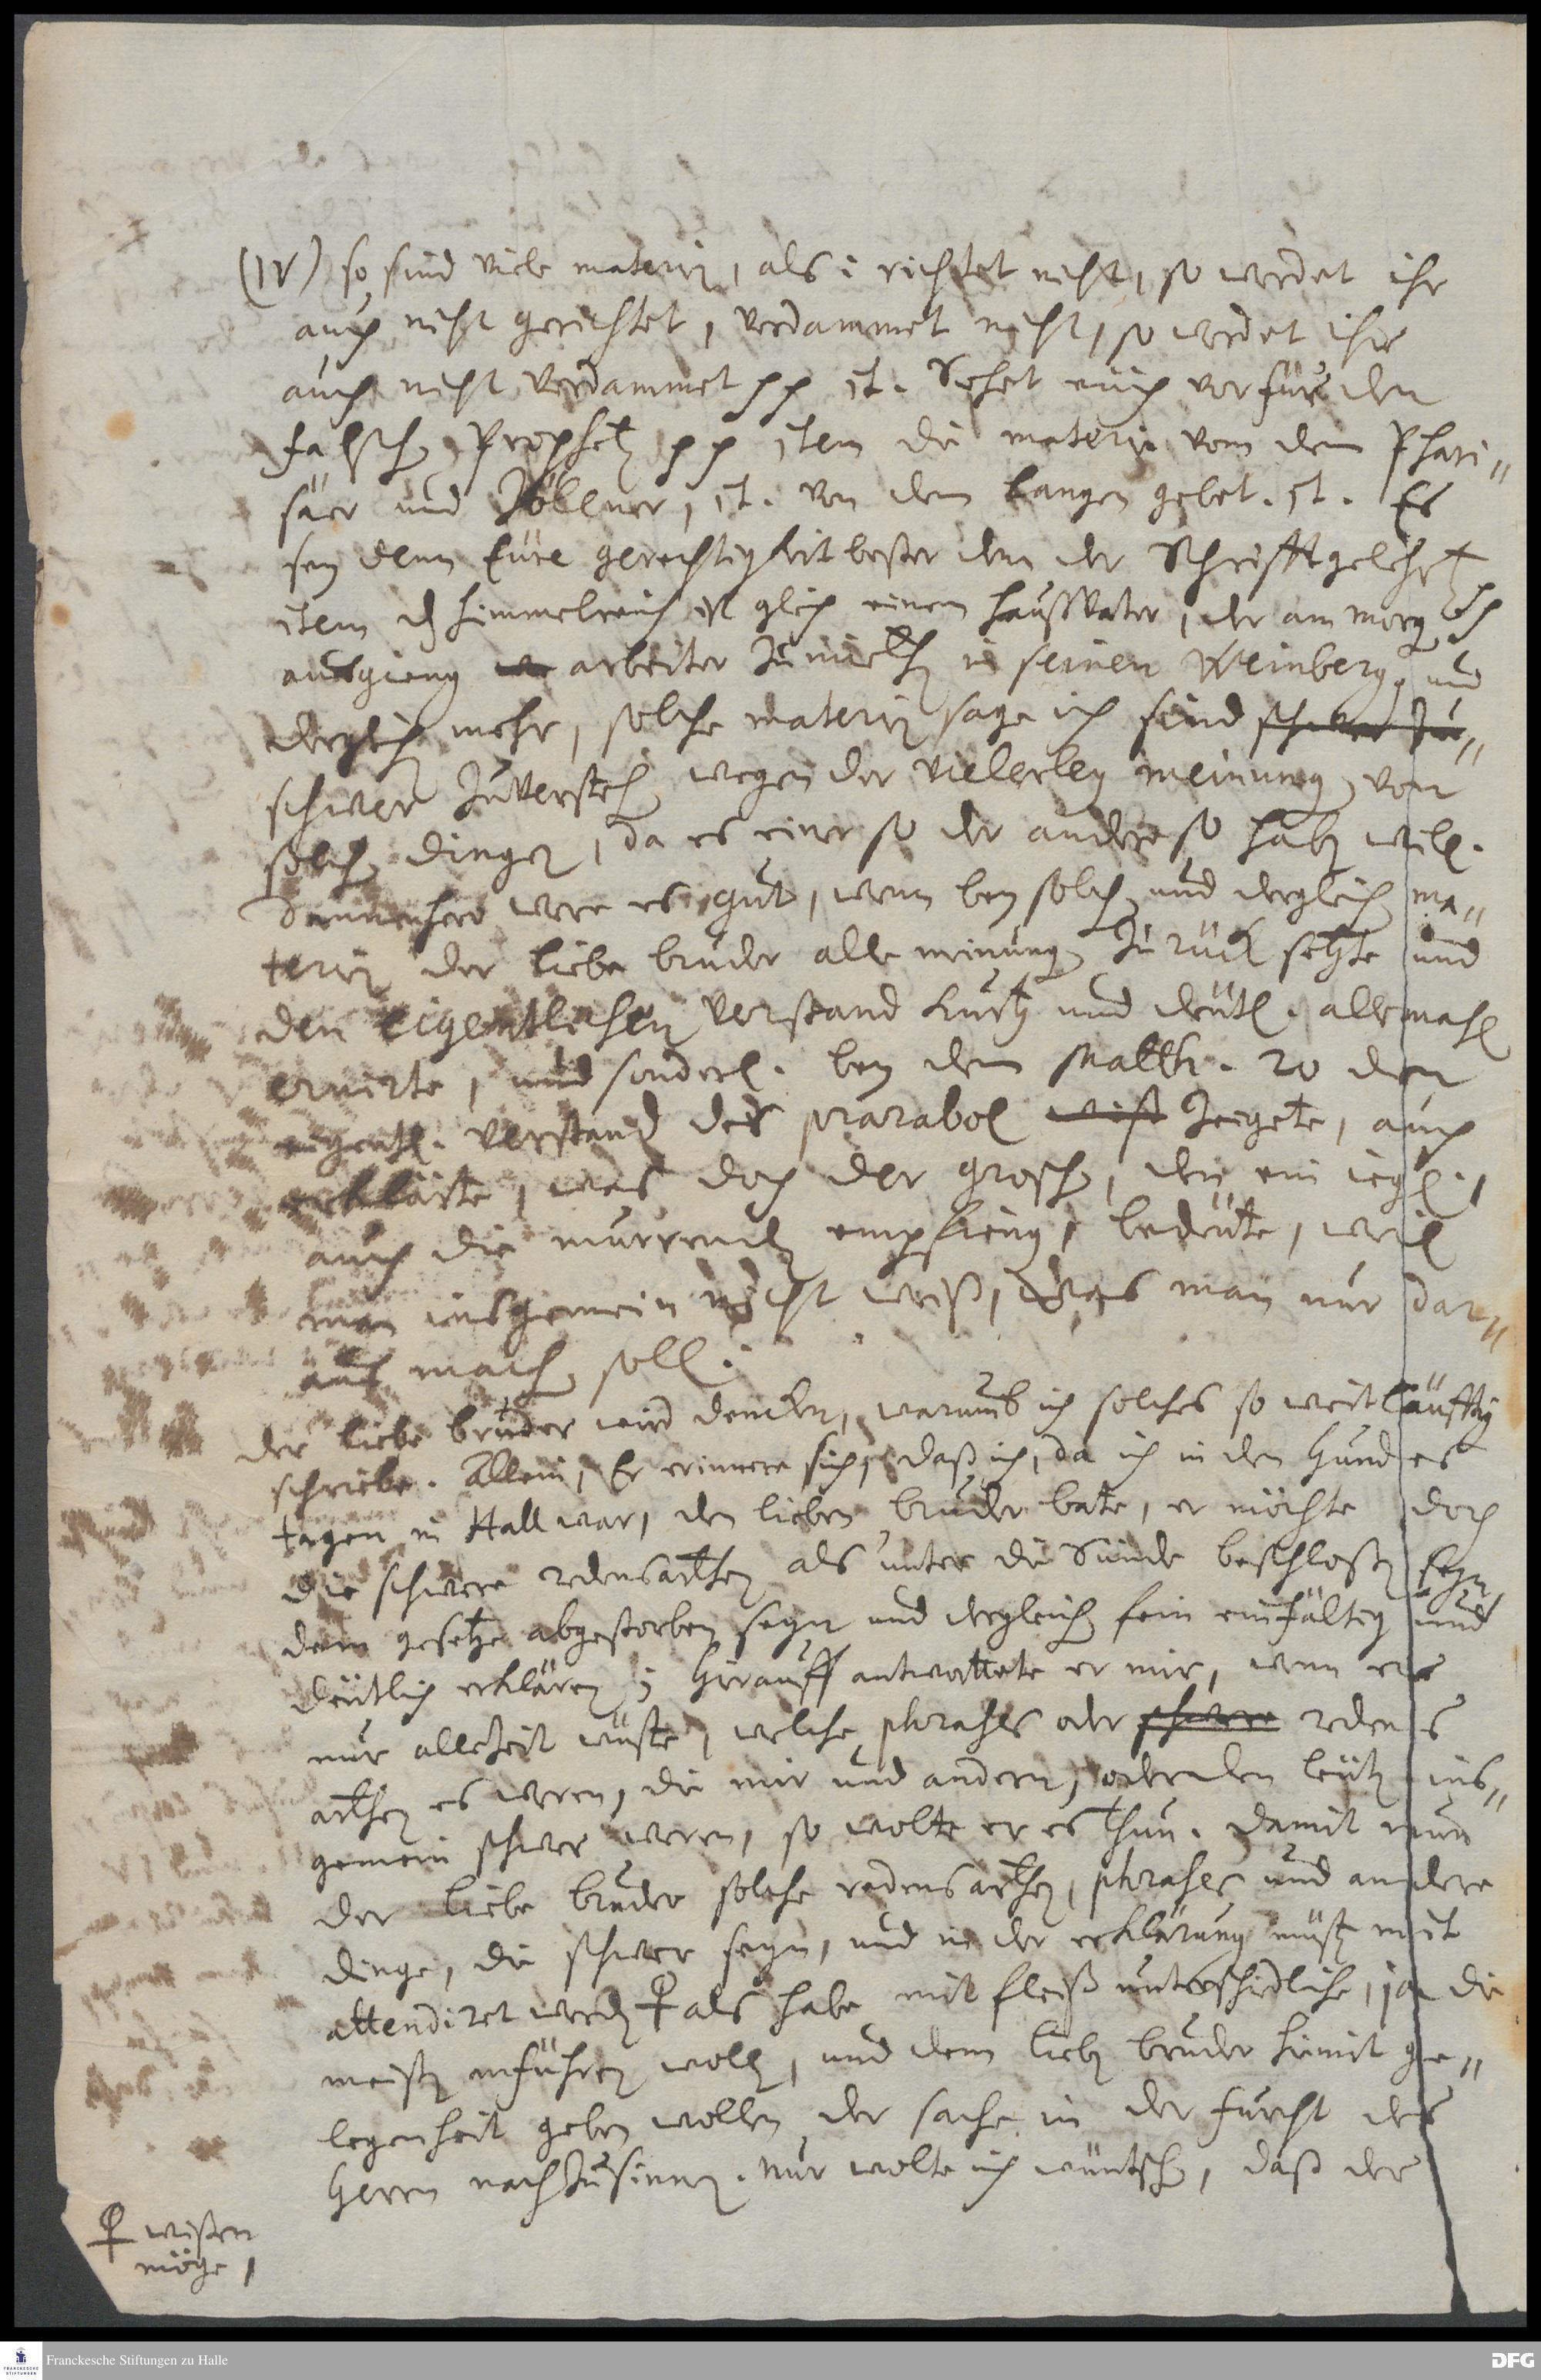 (IV) so sind viele materien, als: richtet nicht, so werdet ihr
auch nicht gerichtet, verdammet nicht, so werdet ihr
auch nicht verdammet pp it. Sehet euch vor für den
falschen Propheten pp item die materie von dem Phari-
säer und Zöllner, it. von dem langen gebet. it. Es
sey denn Eure gerechtigkeit beßer denn der Schrifftgelehrten
item das himmelreich ist gleich einem haußvater, der am morgen
ausgieng arbeiter zu miethen in seinen Weinberg, und
dergleichen mehr, solche materien sage ich sind schwer zu-
schwer zuverstehen wegen der vielerley meinungen von
solchen dingen, da es einer so der andere so haben will.
Dannenhero were es gut, wenn bey solchen und dergleichen ma-
terien der liebe bruder alle meinungen zurück setzte und
den eigentlichen verstand kurtz und deutl. allemahl
eruirte, und sonderl. bey dem Matth. 20 den
eigentl. verstand der parabol zeigete, auch
erklärte, was doch der groschen, den ein iegl.,
auch die murrenden empfieng, bedeute, weil
man insgemein nicht weiß, was man nur dar-
aus machen soll.
der liebe bruder wird dencken, warumb ich solches so weitläufftig
schriebe. Allein, Er erinnere sich, daß ich, da ich in den Hundes
tagen in Hall war, den lieben bruder bate, er möchte doch
die schwere redensarthen als unter die Sünde beschloßen seyn,
dem gesetze abgestorben seyn und dergleichen fein einfältig und
deutlich erklären; Hierauff antwortete er mir, wenn er
nur allezeit wüste, welche phrases oder schwere redens
arthen es weren, die mir und andern, oder den leuten ins-
gemein schwer weren, so wolte er es thun. Damit nun
der liebe bruder solche redensarthen, phrases und andere
dinge, die schwer seyn, und in der erklärung müsten mit
attendiret werden ♀ als habe mit fleiß unterschiedliche, ja die
meisten anführen wollen, und dem lieben bruder hiemit ge-
legenheit geben wollen der sache in der furcht des
Herrn nachzusinnen. Nur wolte ich wüntschen, daß der
♀ wißen
möge,
Franckesche Stiftungen zu Halle
DFG